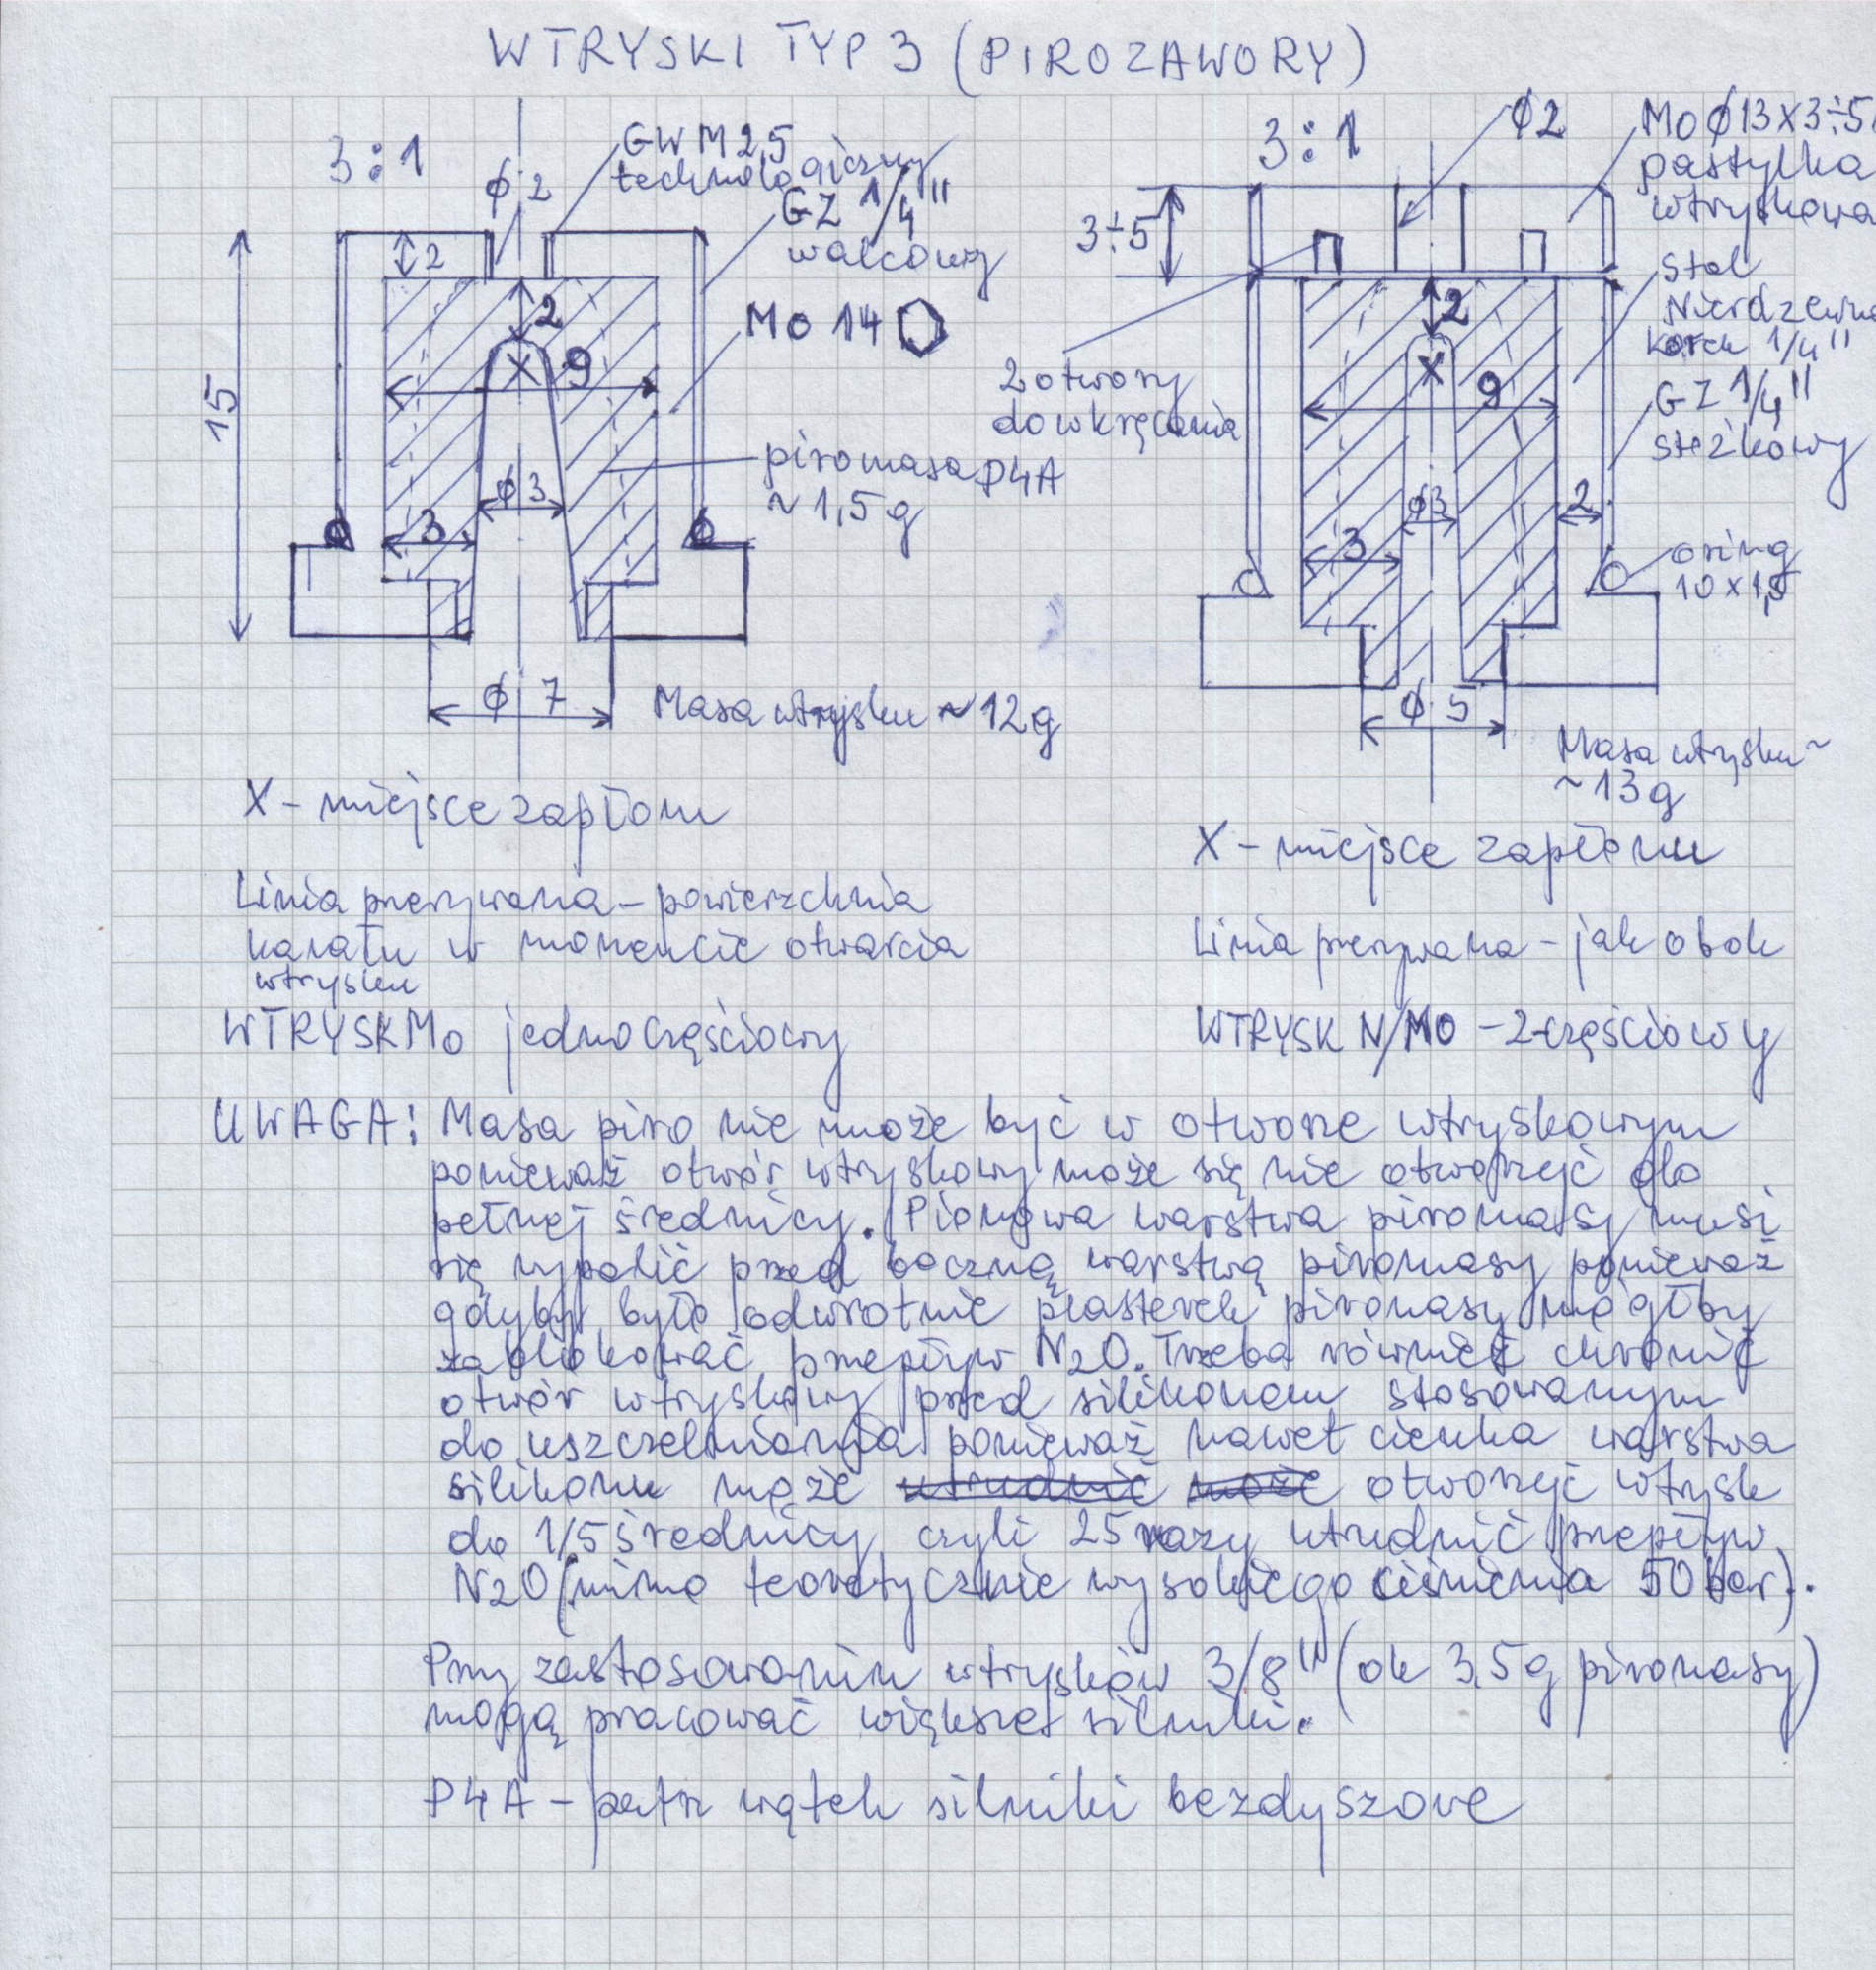 WTRYSKI TYP 3 (PIROZAWORY)
3:1
ϕ 2
GW M2,5
technologiczny
GZ 1/4"
walcowy
Mo 14
2
2
X
9
15
ϕ 3
3
piromasa P4A
~ 1,5 g
ϕ 7
Masa wtrysku ~ 12 g
X – miejsce zapłonu
Linia przerywana – powierzchnia
kanału w momencie otwarcia
wtrysku
WTRYSK Mo jednoczęściowy
3:1
ϕ2
Mo ϕ13 x 3÷5
pastylka
wtryskowa
3÷5
2 otwory
do wkręcania
2
X
9
Stal
Nierdzewna
korek 1/4"
GZ 1/4"
stożkowy
ϕ3
3
2
oring
10 x 1,5
ϕ 5
Masa wtrysku ~
~ 13 g
X – miejsce zapłonu
Linia przerywana – jak obok
WTRYSK N/MO – 2-częściowy
UWAGA: Masa piro nie może być w otworze wtryskowym
ponieważ otwór wtryskowy może się nie otworzyć do
pełnej średnicy. Pionowa warstwa piromasy musi
się wypalić przed boczną warstwą piromasy ponieważ
gdyby było odwrotnie plasterek piromasy mógłby
zablokować przepływ N2O. Trzeba również chronić
otwór wtryskowy przed silikonem stosowanym
do uszczelniania ponieważ nawet cienka warstwa
silikonu może utrudnić może otworzyć wtrysk
do 1/5 średnicy czyli 25 razy utrudnić przepływ
N2O (mimo teoretycznie wysokiego ciśnienia 50 bar).
Przy zastosowaniu wtrysków 3/8" (ok 3,5 g piromasy)
mogą pracować większe silniki.
P4A – patrz wątek silniki bezdyszowe